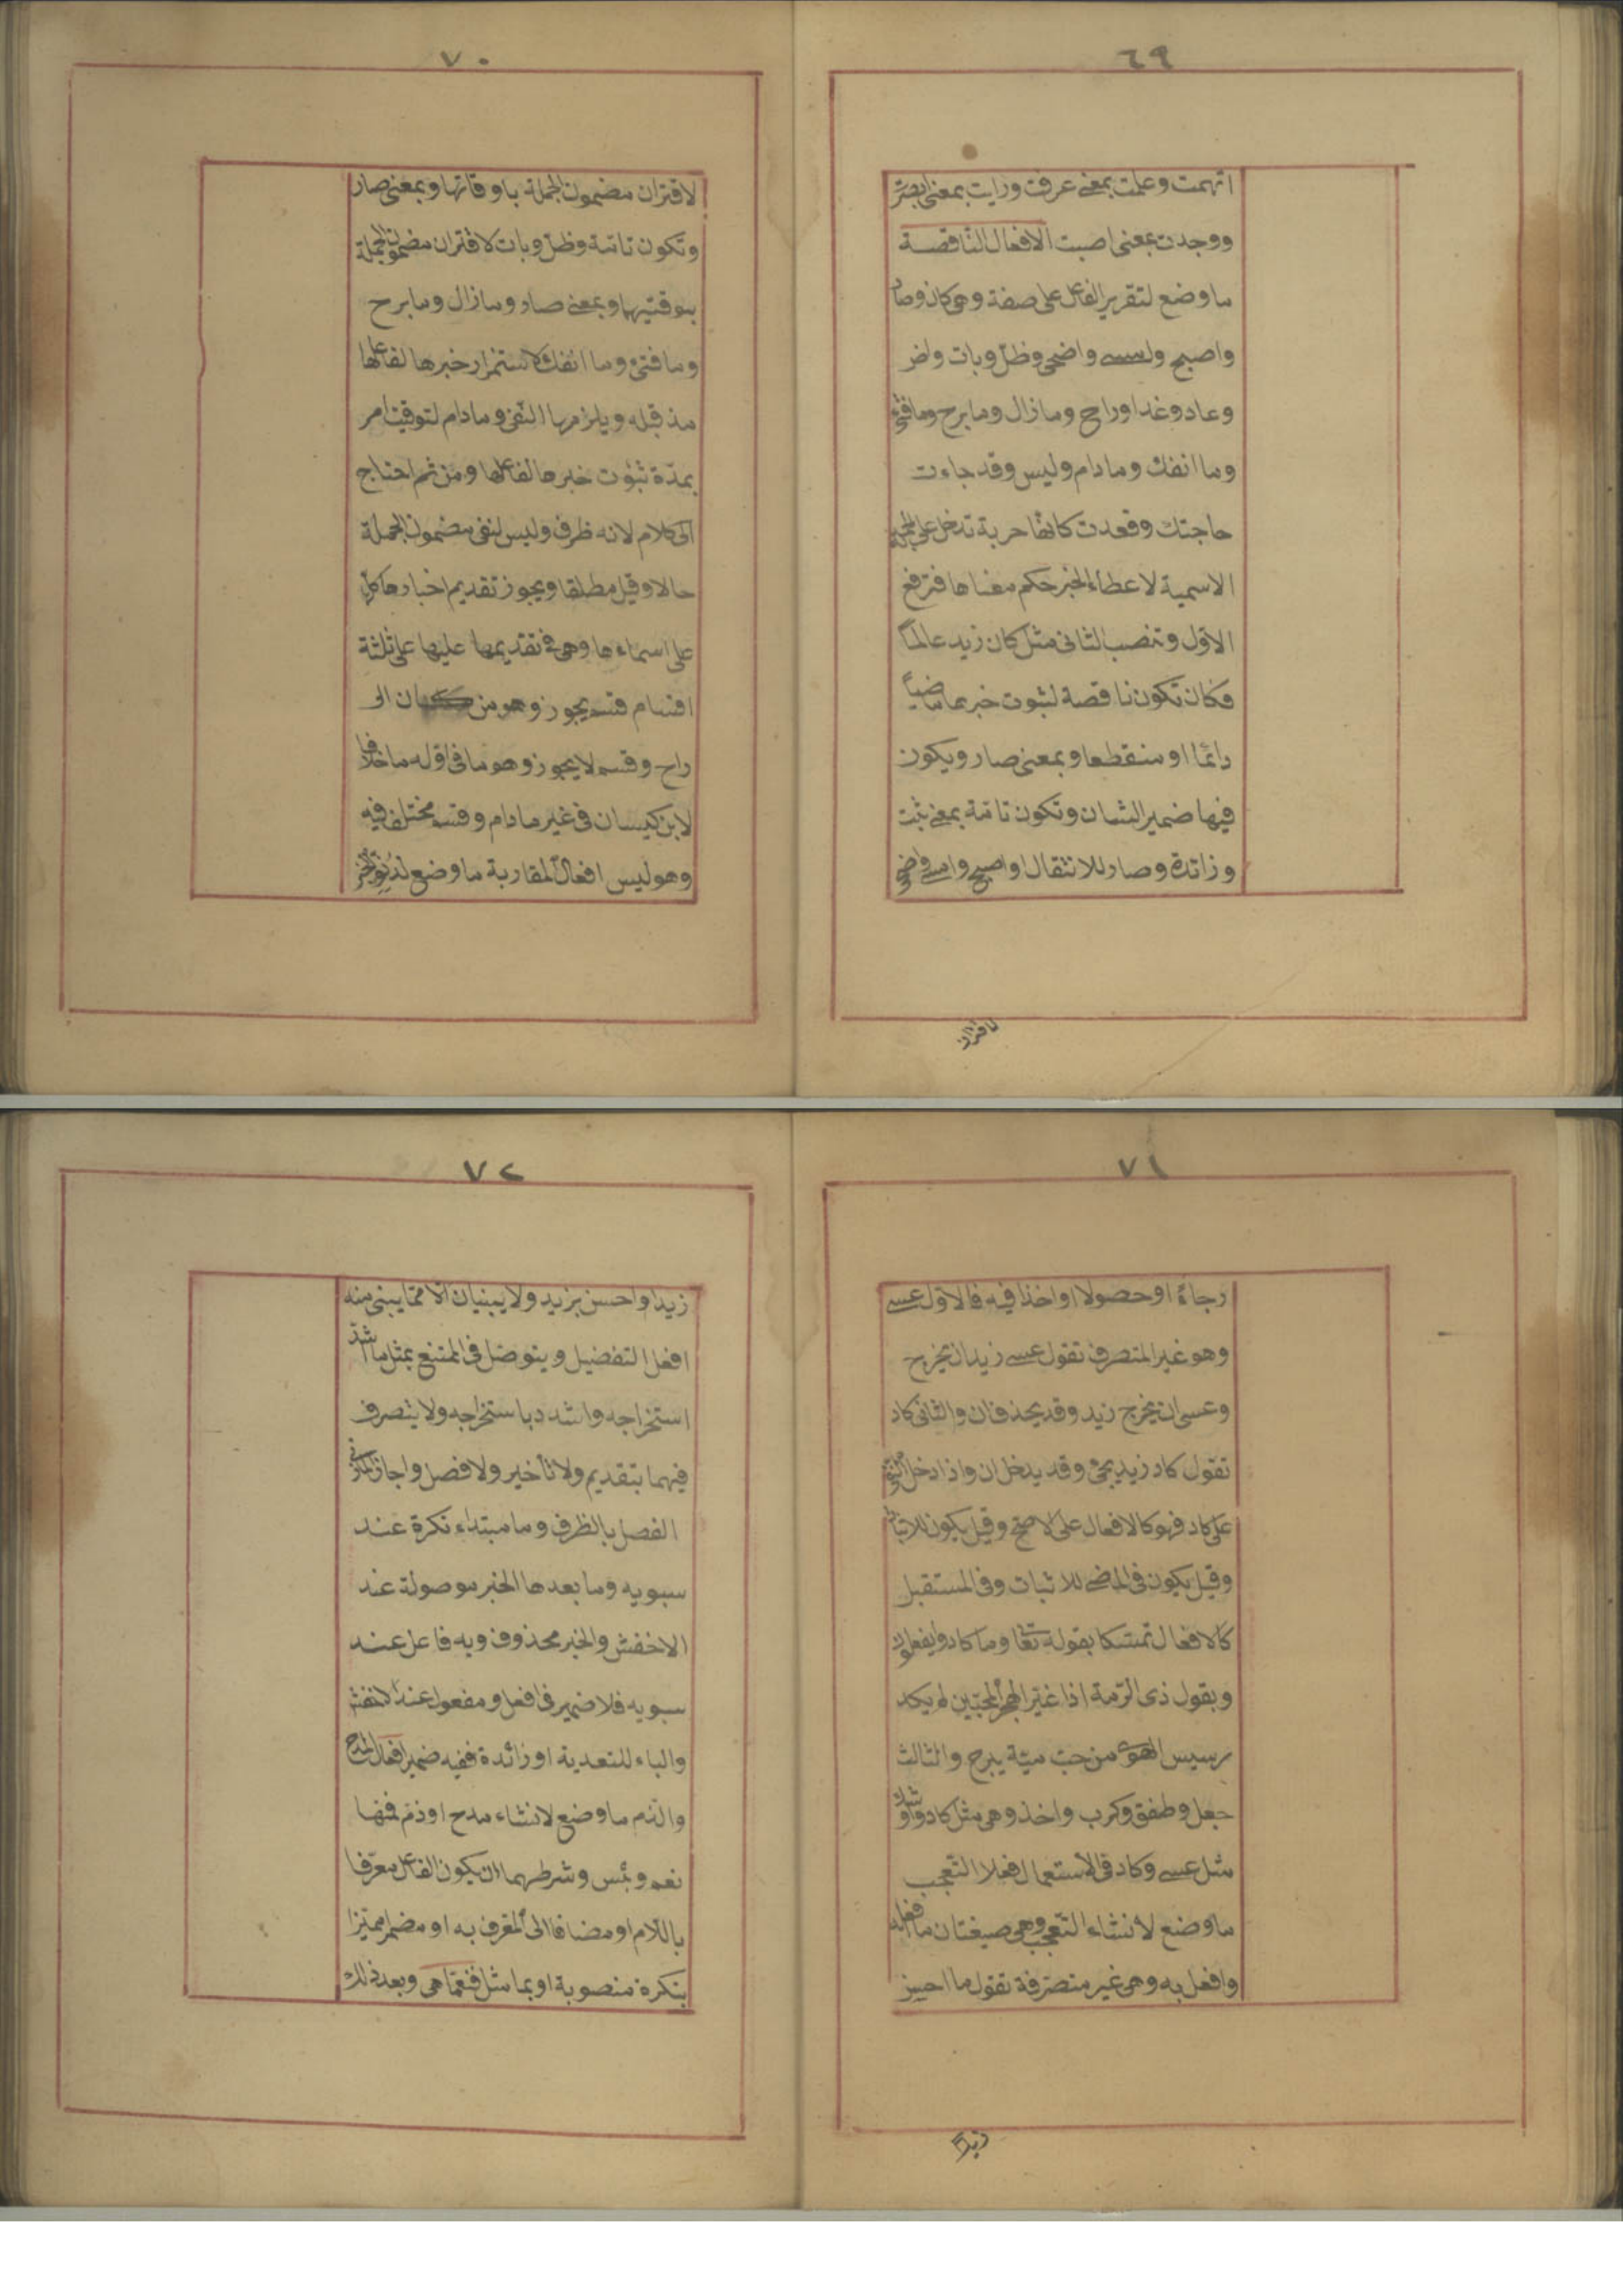 ٦٩
اتهمت وعلمت بمعنى عرفت ورايت بمعنى ابصرت
ووجدت بمعنى اصبت الافعال الناقصة
ما وضع لتقرير الفاعل على صفة وهى كان وصار
واصبح وامسى واضحى وظلّ وبات واض
وعاد وغدا وراح وما زال وما برح وما فتئ
وما انفك وما دام وليس وقد جاءت
حاجتك وقعدت كانها حربة تدخل على الجملة
الاسمية لاعطاء الخبر حكم معناها فترفع
الاوّل وتنصب الثانى مثل كان زيد عالماً
فكان تكون ناقصة لثبوت خبرها ماضياً
دائما او منقطعا وبمعنى صار ويكون
فيها ضمير الشان وتكون تامّة بمعنى ثبت
وزائدة وصار للانتقال واصبح وامسى واضحى
لاقتران
٧٠
لاقتران مضمون الجملة باوقاتها وبمعنى صار
وتكون تامّة وظلّ وبات لاقتران مضمون الجملة
بوقتيهما وبمعنى صار وما زال وما برح
وما فتئ وما انفك لاستمرار خبرها لفاعلها
مذ قبله ويلزمها النفى وما دام لتوقيت امر
بمدّة ثبوت خبرها لفاعلها ومن ثم احتاج
الى كلام لانه ظرف وليس لنفى مضمون الجملة
حالا وقيل مطلقا ويجوز تقديم اخبارها كلّها
على اسماءها وهى فى تقديمها عليها على ثلثة
اقسام قسم يجوز وهو من كان الى
راح وقسم لا يجوز وهو ما فى اوله ما خلافا
لابن كيسان فى غير ما دام وقسم مختلف فيه
وهو ليس افعال المقاربة ما وضع لدنو الخبر
٧١
رجاءً او حصولا او اخذا فيه فالاوّل عسى
وهو غير المتصرف تقول عسى زيد ان يخرج
وعسى ان يخرج زيد وقد يحذف ان والثانى كاد
تقول كاد زيد يجئ وقد يدخل ان واذا دخل النفى
على كاد فهو كالافعال على الاصح وقيل يكون للاثبات
وقيل يكون فى الماضى للاثبات وفى المستقبل
كالافعال تمسّكا بقوله تعا وما كادوا يفعلون
وبقول ذى الرّمة اذا غيّر الهجر المحبّين لم يكد
رسيس الهوى من حبّ ميّة يبرح والثالث
جعل وطفق وكرب واخذ وهى مثل كاد واوشك
مثل عسى وكاد فى الاستعمال فعلا التعجب
ما وضع لانشاء التعجب وهى صيغتان ما افعله
وافعل به وهى غير متصرّفة تقول ما احسن
زيداً
٧٢
زيدا واحسن بزيد ولا يبنيان الا ممّا يبنى منه
افعل التفضيل ويتوصّل فى الممتنع بمثل ما اشدّ
استخراجه واشدد باستخراجه ولا يتصرف
فيهما بتقديم ولا تأخير ولا فصل واجاز المازنى
الفصل بالظرف وما مبتداء نكرة عند
سيبويه وما بعدها الخبر موصولة عند
الاخفش والخبر محذوف وبه فاعل عند
سيبويه فلا ضمير فى افعل ومفعول عند الاخفش
والباء للتعدية او زائدة ففيه ضمير افعال المدح
والذم ما وضع لانشاء مدح او ذمّ فمنها
نعم وبئس وشرطهما ان يكون الفاعل معرّفا
باللّام او مضافا الى المعرف به او مضمر مميّزا
بنكرة منصوبة او بما مثل فنعمّا هى وبعد ذلك